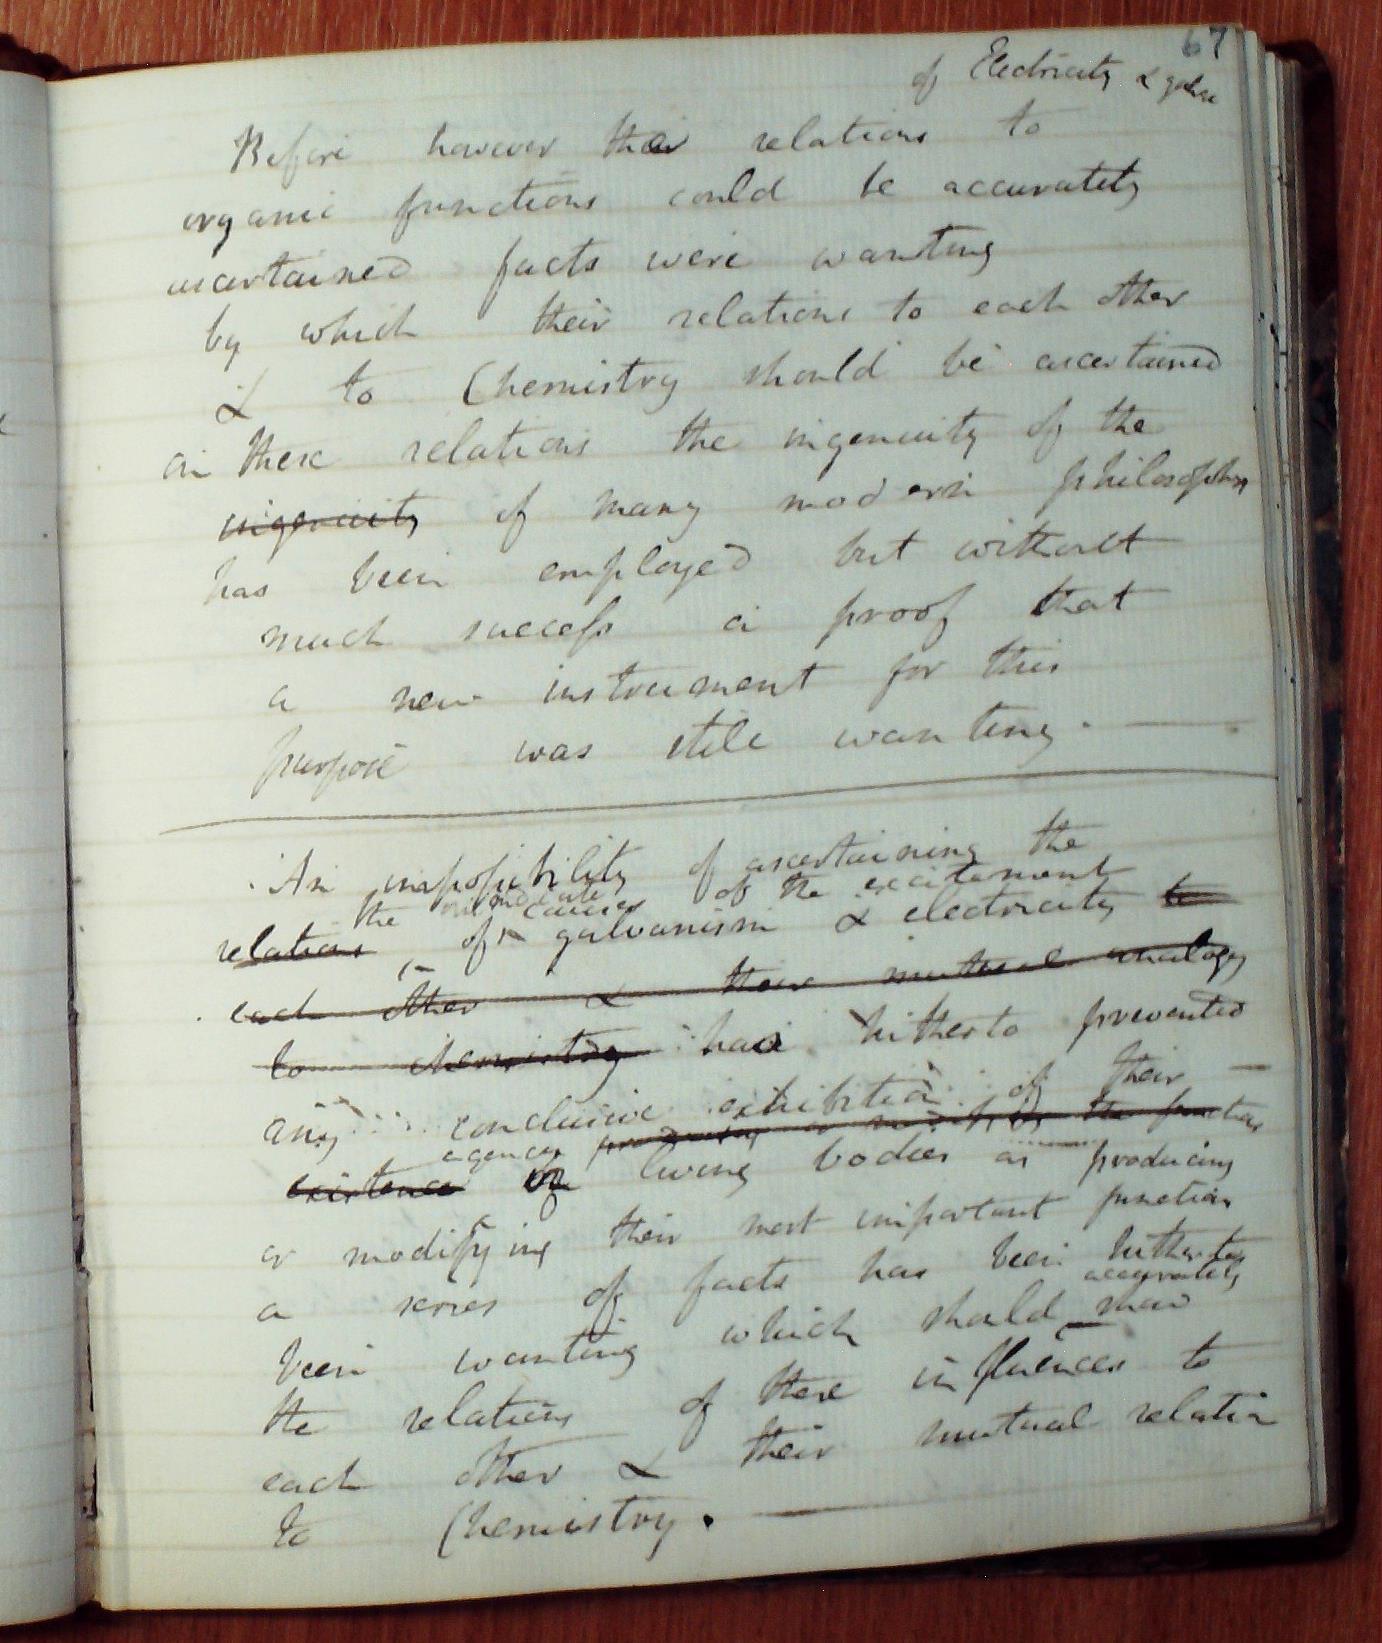 67
of Electricity & galv
Before however their relations to
organic functions could be accurately
ascertained facts were wanting
by which their relations to each other
& to Chemistry should be ascertained
on these relations the ingenuity of the
ingenuity of many modern philosophers
has been employed but without
much success a proof that
a new instrument for this
purpose was still wanting. —
An impossibility of ascertaining the
the immediate causes of the excitement
relations of galvanism & electricity to
each other & their mutual analogy
to chemistry has hitherto prevented
any conclusive exhibition of their —
agency producing or modifying the functions
existence in living bodies as producing
or modifying their most important functions
a series of facts has been hitherto
accurately
been wanting which should shew
the relations of these influences to
each other & their mutual relation
to Chemistry. —